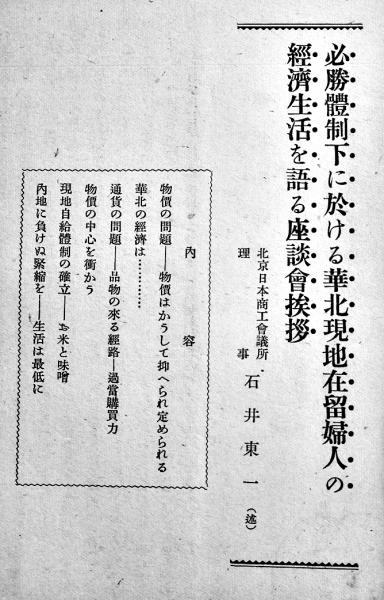 必勝體制下に於ける華北現地在留婦人の
經濟生活を語る座談會挨拶
北京日本商工會議所
理事
石井東一（述）
內容
物價の問題――物價はかうして抑へられ定められる
華北の經濟は…………
通貨の問題――品物の來る經路―過當購買力
物價の中心を衝かう
現地自給體制の確立――お米と味噌
內地に負けぬ緊縮を――生活は最低に